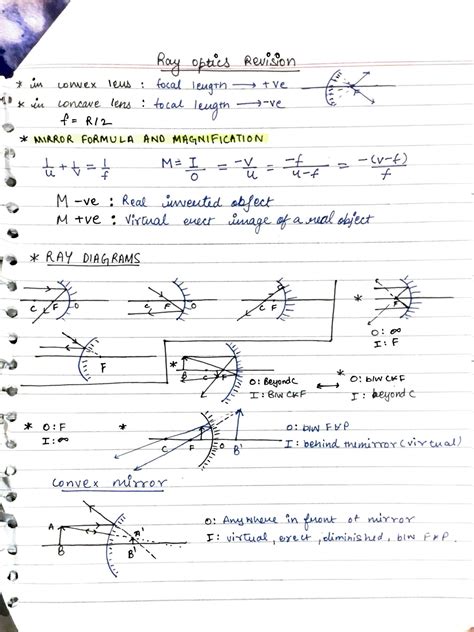 Ray optics Revision
* in convex lens : focal length → +ve
* in concave lens : focal length → -ve
f = R/2
* MIRROR FORMULA AND MAGNIFICATION
1/u + 1/v = 1/f M = I/O = -v/u = -f/u-f = -(v-f)/f
M -ve : Real inverted object
M +ve : Virtual erect image of a real object
* RAY DIAGRAMS
C F O
C F O
C F
* F
O: ∞
I: F
F
* B C F
O: Beyond C
I: B/W C & F
↔
* O: b/w C & F
I: beyond C
* O: F
I: ∞
* C F O B'
O: b/w F & P
I: behind the mirror (virtual)
Convex mirror
A B A' B'
O: Anywhere in front of mirror
I: virtual, erect, diminished, b/w F & P.